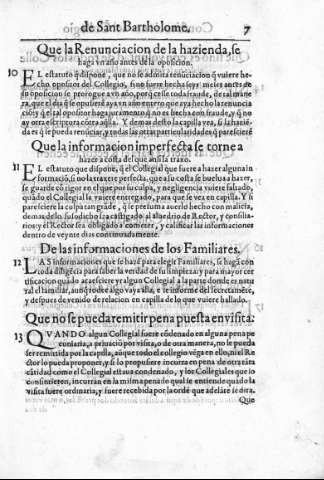 de Sant Bartholome. 7
Que la Renunciacion de la hazienda, se
haga vn año antes de la oposicion.
10 EL estatuto q̃ dispone, que no se admita renũciacion q̃ vuiere he-
cho opositor del Collegio, sino fuere hecha seys meses antes de
su oposicion se prorogue a vn año, porq̃ cesse toda fraude, de tal mane
ra, que el dia q̃ se opusiere aya vn año entero que aya hecho la renũcia
ciõ: y q̃ el tal opositor haga juramento q̃ no es hecha con fraude, y q̃ no
ay otra escriptura cõtra aq̃lla. Y demas desto la capilla vea, si la haziẽ
da es q̃ se pueda renũciar, y todas las otras particularidades q̃ pareciere
Que la informacion imperfecta se torne a
hazer a costa del que assi la traxo.
11 EL estatuto que dispone, q̃ el Collegial que fuere a hazer alguna in
formaciõ, si no la traxere perfecta, que a su costa se buelua a hazer,
se guarde cõ rigor en el que por su culpa, y negligencia vuiere faltado,
quãdo el Collegial la vuiere entregado, para que se vea en capilla. Y si
pareciere la culpa tan grãde, q̃ se presuma auerlo hecho con malicia,
demas de lo susodicho sea castigado al aluedrio de Rector, y consilia-
rios: y el Rector sea obligado a cometer, y calificar las informaciones
dentro de veynte dias continuadamente.
De las informaciones de los Familiares.
12 LAS informaciones que se hazẽ para elegir Familiares, se hagã con
toda diligẽcia para saber la verdad de su limpieza: y para mayor cer
tificacion quãdo acaesciere yr algun Collegial a la parte donde es natu
ral el familiar, aunq̃ rodee algo vaya alla, e se informe del secretamẽte,
y despues de venido de relacion en capilla de lo que vuiere hallado.
Que no se pueda remitir pena puesta en visita:
13 QVANDO algun Collegial fuere cõdenado en alguna pena pe
cuniaria, a priuaciõ por visita, o de otra manera, no le pueda
ser remitida por la capilla, aũque todo el collegio vẽga en ello, ni el Re
ctor lo pueda proponer, y si lo propusiere incurra en pena de otra tãta
cãtidad como el Collegial estaua condenado, y los Collegiales que lo
consintieren, incurran en la misma pena de qual se entiende quãdo la
visita fuere ordinaria, y fuere recebida por la ordẽ que adelãte se dira.
Que